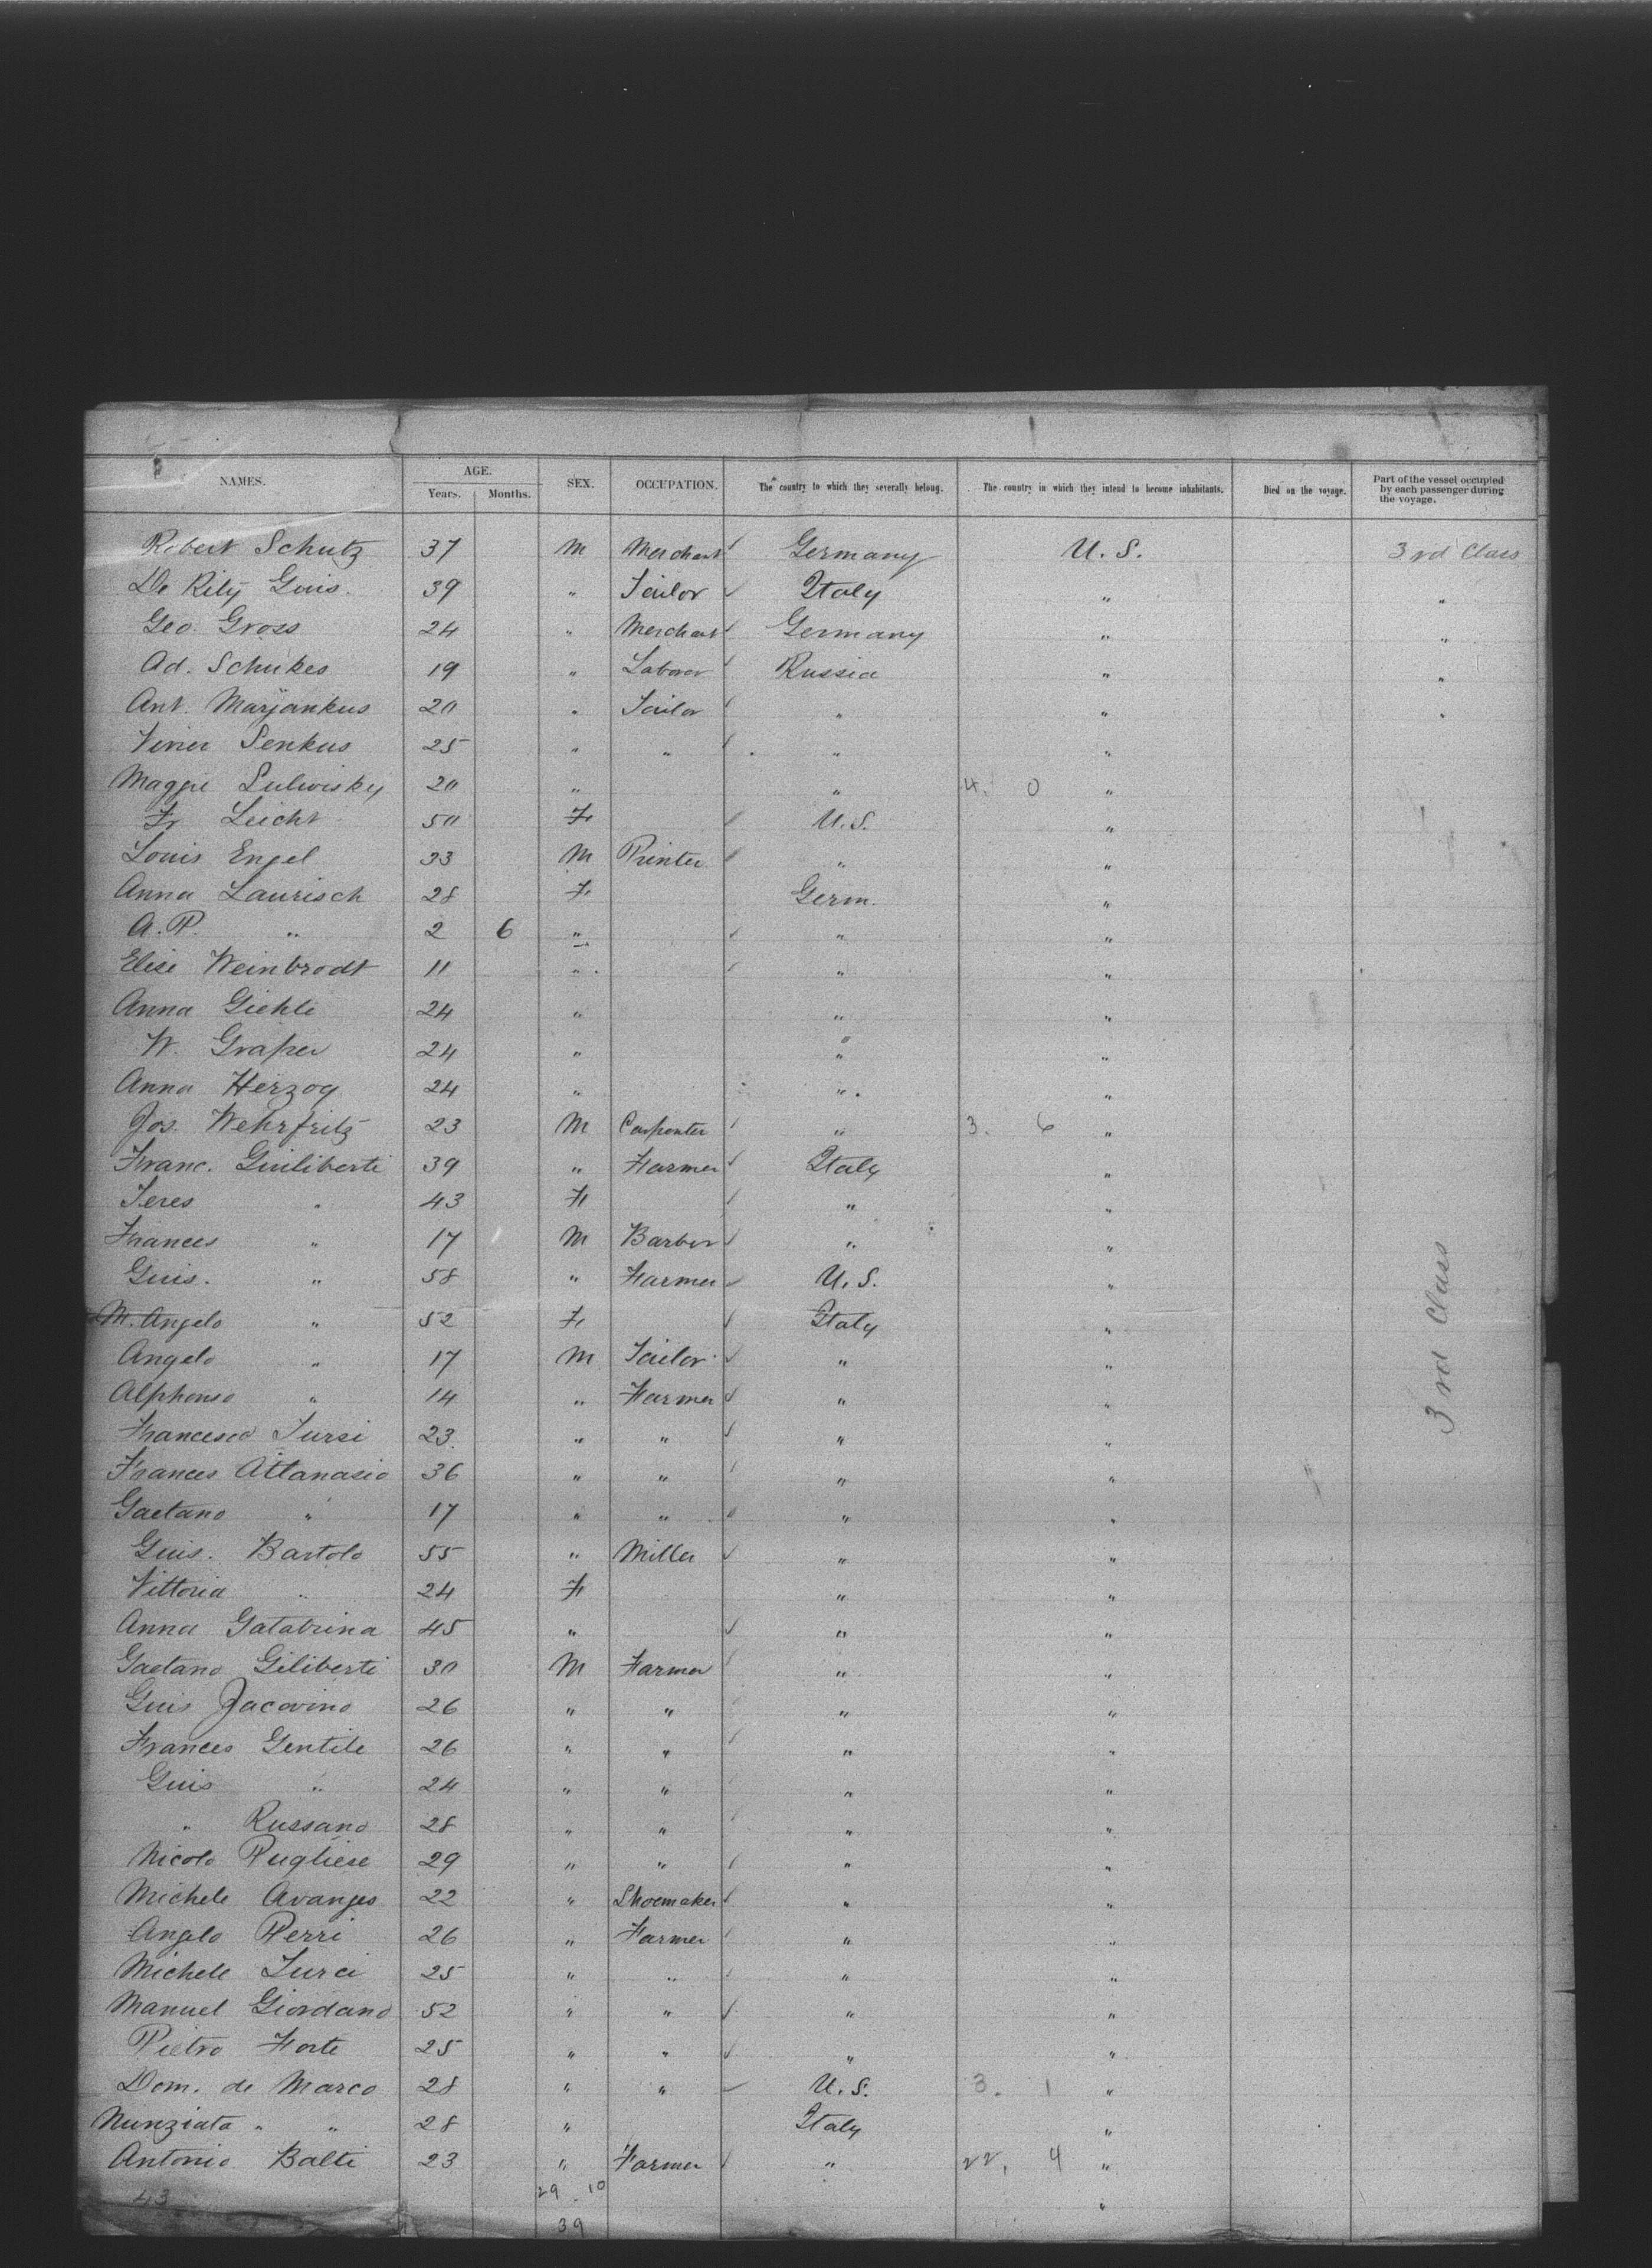 NAMES. AGE. Years. Months. SEX. OCCUPATION. The country to which they severally belong. The country in which they intend to become inhabitants. Died on the voyage. Part of the vessel occupied by each passenger during the voyage.
Robert Schutz 37 M Merchant Germany U.S. 3rd Class
De Rily Guis. 39 " Tailor Italy " "
Geo. Gross 24 " Merchant Germany " "
Ad. Schukes 19 " Laborer Russia " "
Ant. Marjankus 20 " Tailor " " "
Viner Senkus 25 " " " "
Maggie Lulwisky 20 " " 4. 0 "
Fr Leicht 50 F U.S. "
Louis Engel 33 M Printer " "
Anna Laurisch 28 F Germ. "
A.P. " 2 6 " " "
Elise Weinbrodt 11 " " "
Anna Giehle 24 " " "
W. Graper 24 " " "
Anna Herzog 24 " " "
Jos. Wehrfritz 23 M Carpenter " 3. 6 "
Franc. Guiliberti 39 " Farmer Italy "
Teres " 43 F " "
Frances " 17 M Barber " "
Guis. " 58 " Farmer U.S. "
M. Angelo " 52 F Italy "
Angelo " 17 M Tailor " "
Alphonso " 14 " Farmer " "
3rd Class
Francesco Tursi 23 " " " "
Frances Attanasio 36 " " " "
Gaetano " 17 " " " "
Guis. Bartolo 55 " Miller " "
Vittoria " 24 F " "
Anna Gatabrina 45 " " "
Gaetano Giliberti 30 M Farmer " "
Guis Jacovino 26 " " " "
Frances Gentile 26 " " " "
Guis " 24 " " " "
" Russano 28 " " " "
Nicolo Pugliese 29 " " " "
Michele Avanges 22 " Shoemaker " "
Angelo Perri 26 " Farmer " "
Michele Turci 25 " " " "
Manuel Giordano 52 " " " "
Pietro Forte 25 " " " "
Dom. de Marco 28 " " U.S. 3. 1 "
Nunziata " " 28 " Italy "
Antonio Balti 23 " Farmer " 22, 4 "
43 29 . 10 "
39